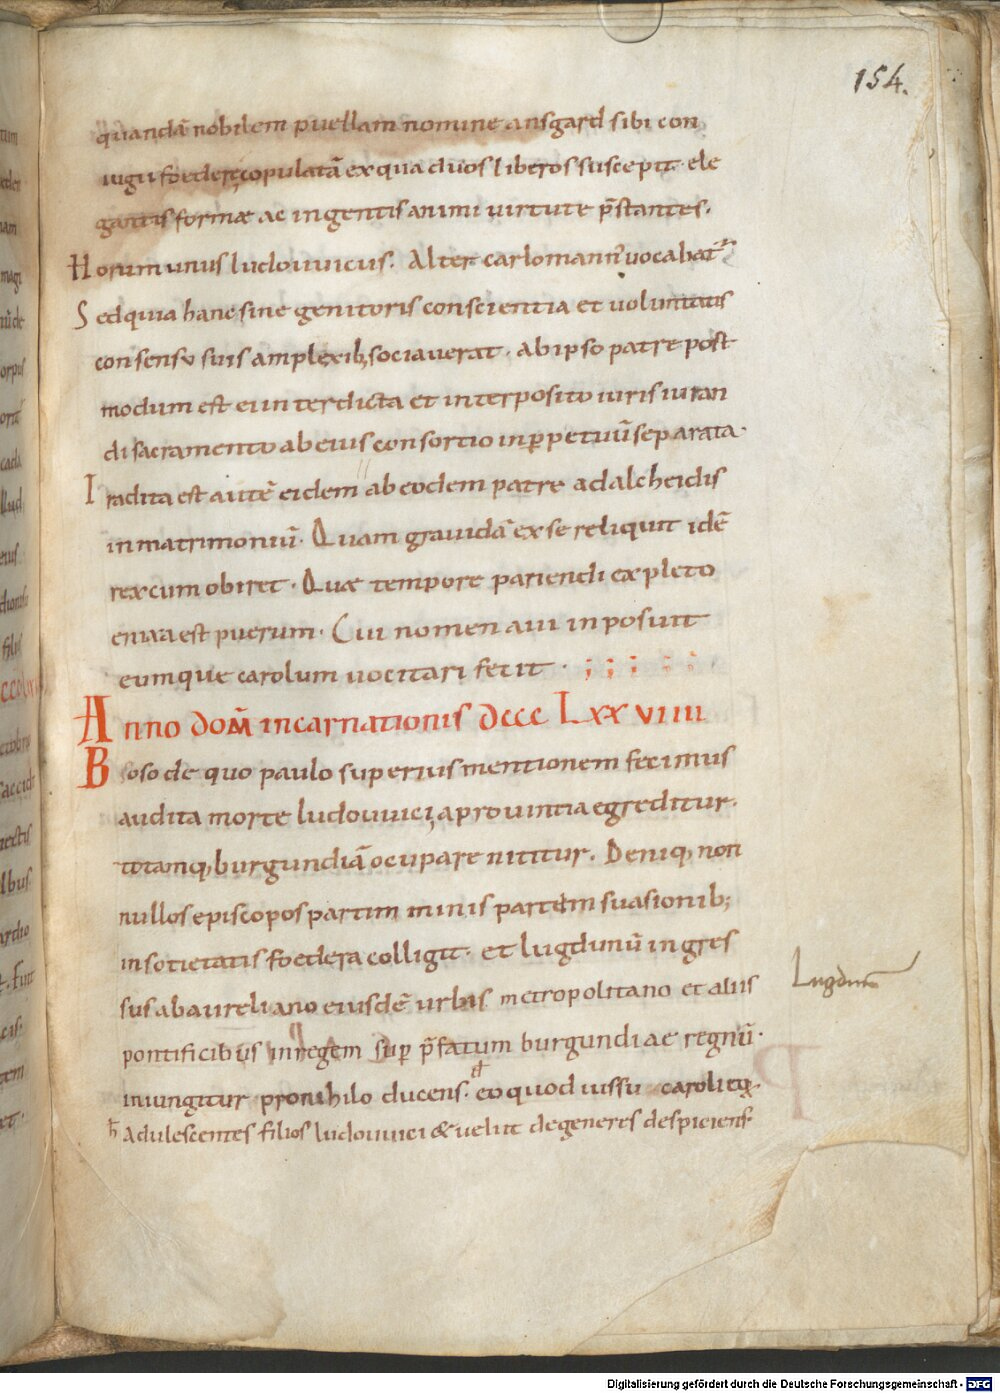 154.
quandā nobilem puellam nomine ansgard sibi con
iugii foedere copulatā ex qua duos liberos suscepit · ele
gantis formæ ac ingentis animi uirtute p̄stantes.
Horum unus ludouuicus. Alter carlomann' uocabat᷑
Sed quia hanc sine genitoris conscientia et uoluntatis
consensu suis amplexib; sociauerat. ab ipso patre post
modum est ei interdicta et interposito iuris iuran
di sacramento ab eius consortio in ꝑpetuū separata.
Tradita est autē eidem ab eodem patre adalcheidis
in matrimoniū. Quam grauidā ex se reliquit idē
rex cum obiret. Quæ tempore pariendi expleto
enixa est puerum. Cui nomen aui inposuit
eumque carolum uocitari fecit · ; ; ; ; ;
Anno dom̄ incarnationis dccc Lxx viiii
Boso de quo paulo superius mentionem fecimus
audita morte ludouuici a prouintia egreditur.
totamq; burgundiā ocupare nititur. Deniq; non
nullos episcopos partim minis partim suasionib;
in sotietatis foedera colligit. et lugdunū ingres
sus ab aureliano eiusdē urbis metropolitano et aliis
Lugdunū
pontificibus in regem sup p̄fatum burgundiae regnū.
iniungitur pro nihilo ducens. eo quod iussu caroli
Adulescentes filios ludouuici & uelut degeneres despiciens
Digitalisierung gefördert durch die Deutsche Forschungsgemeinschaft - DFG